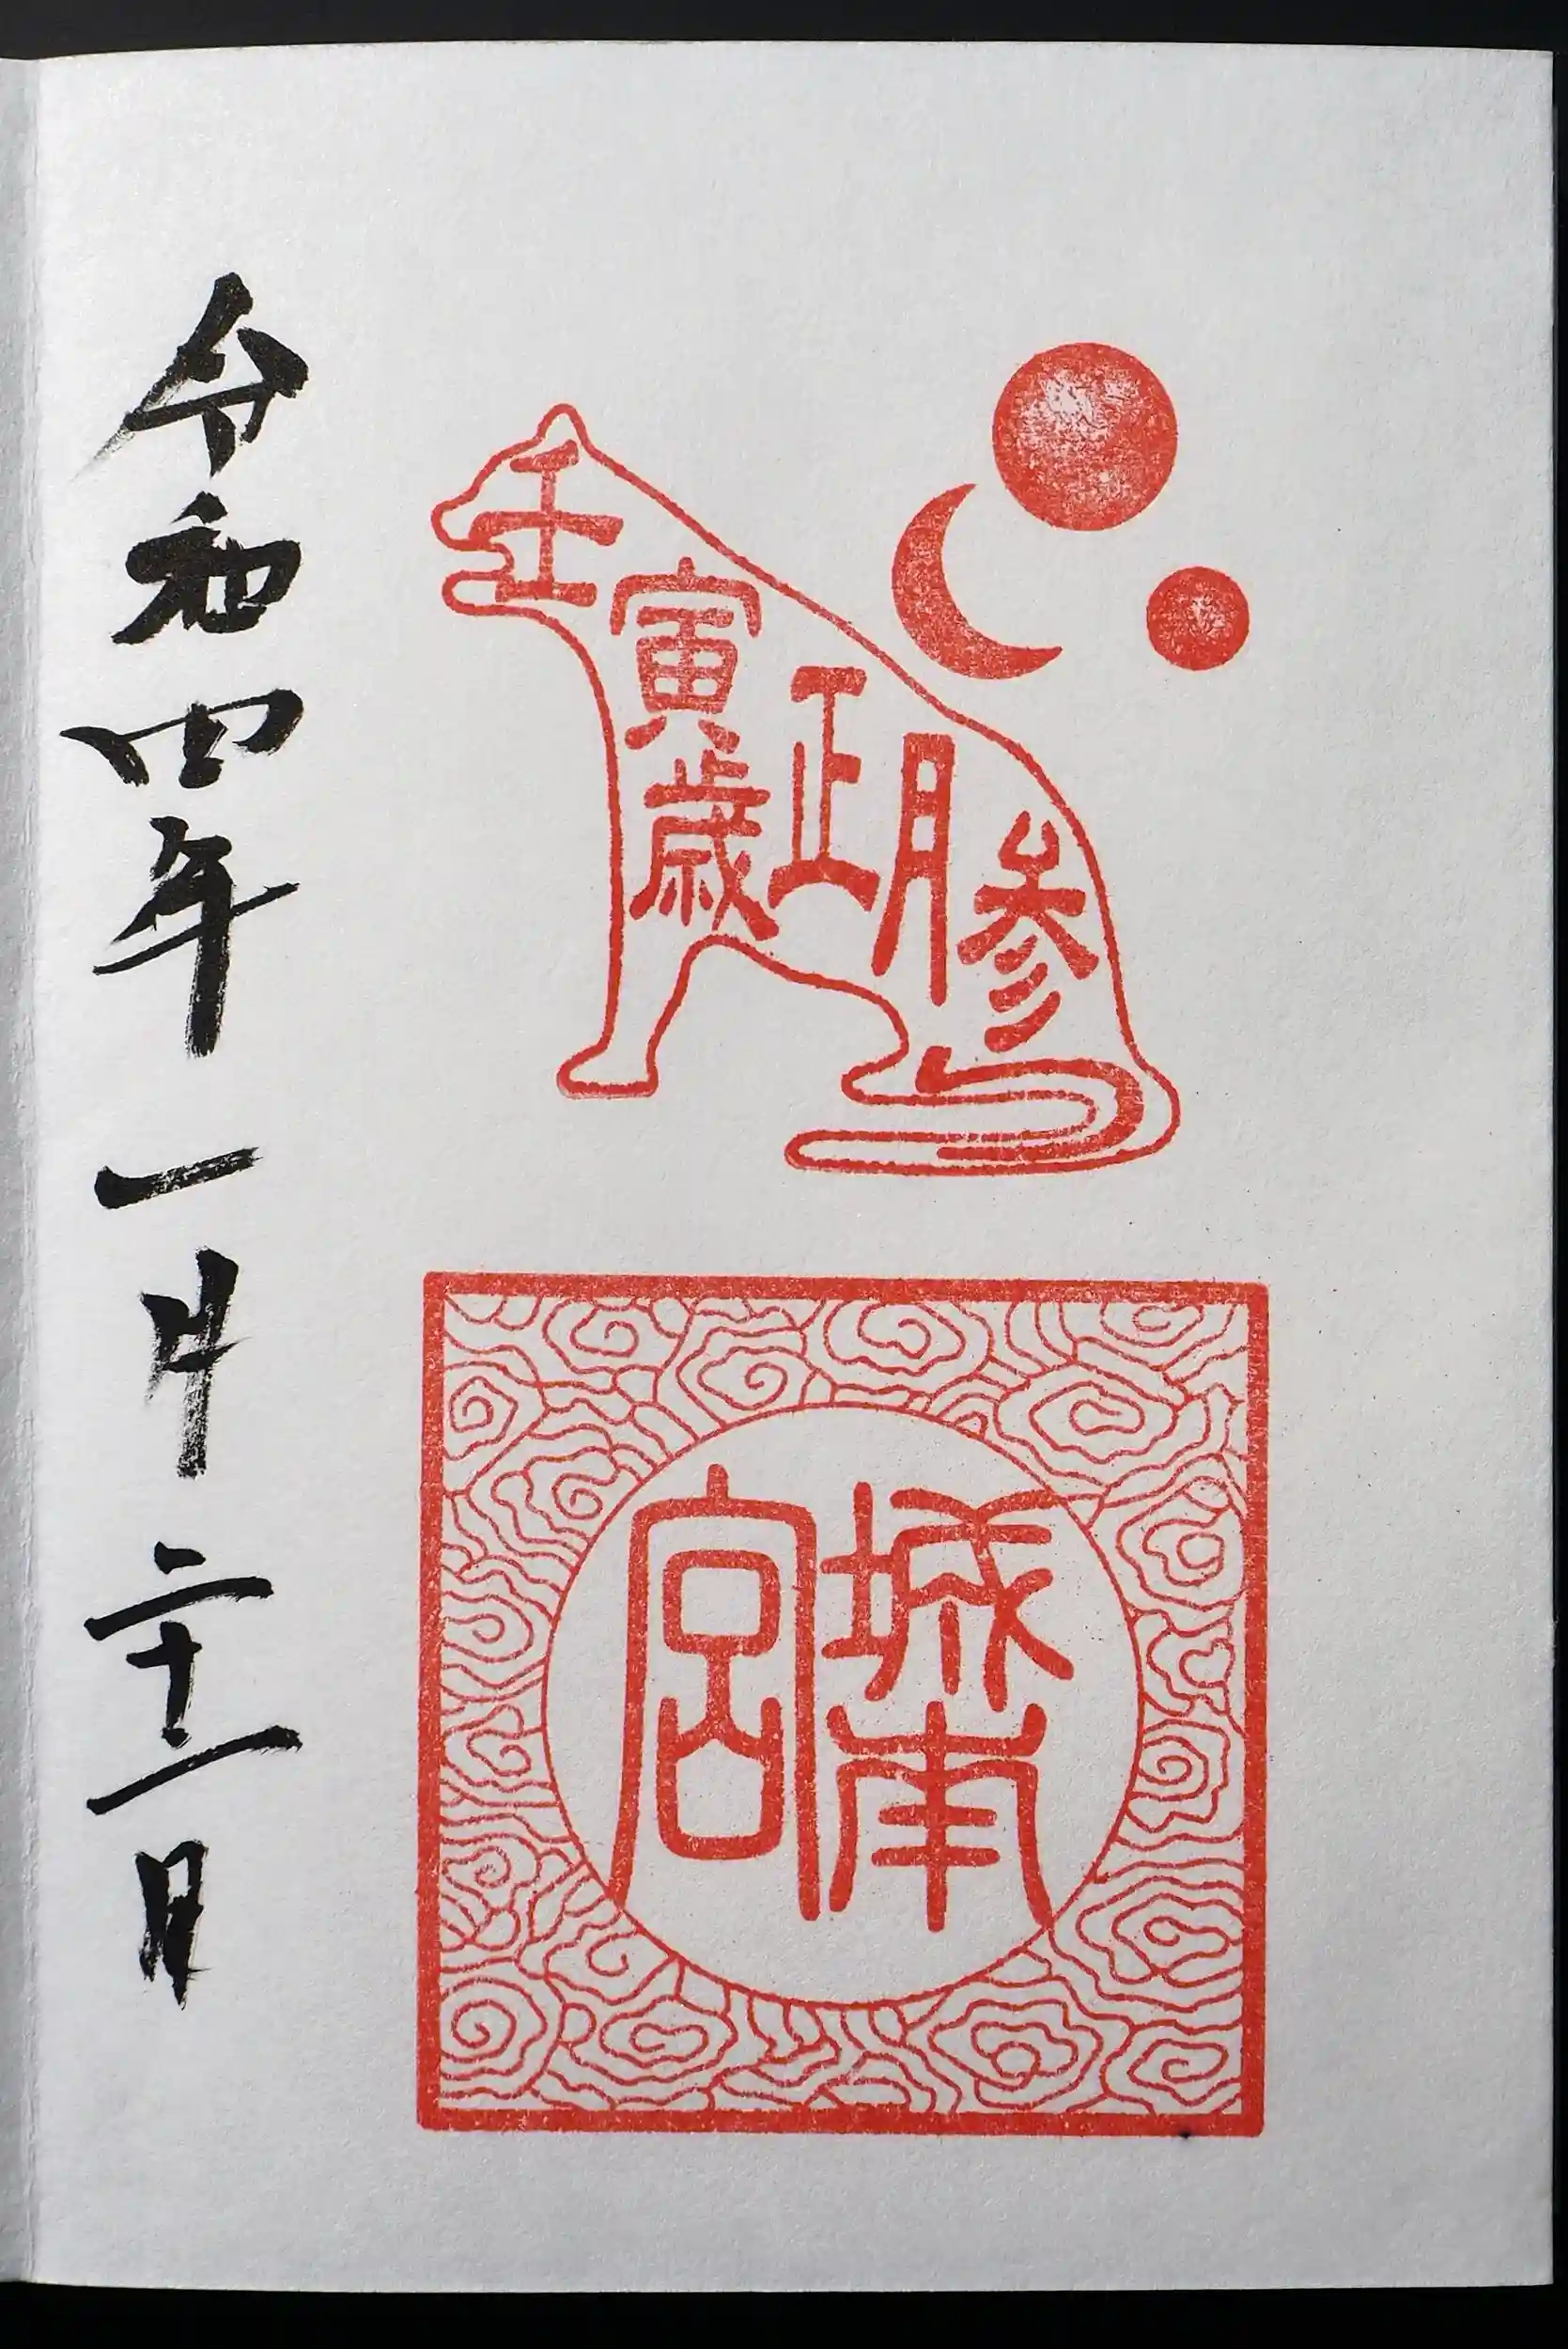 壬寅歳正月参
城南
宮
令和四年一月二十一日